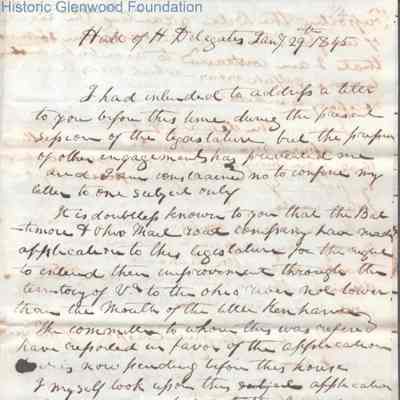 Historic Glenwood Foundation
Hall of H. Delegates Jany 29th 1845
I had intended to address a letter
to you before this time, during the present
session of the legislature but the press
of other engagements has prevented me
and I am constrained now to confine my
letter to one subject only
It is doubtless known to you that the Bal
timore & Ohio Rail road company have made
application to this legislature for the right
to extend their improvement through the
territory of Va to the Ohio river not lower
than the Mouth of the little Kanhawa
The committee to whom this was refered
have reported in favor of the application
is now pending before this house
I myself look upon this subject application